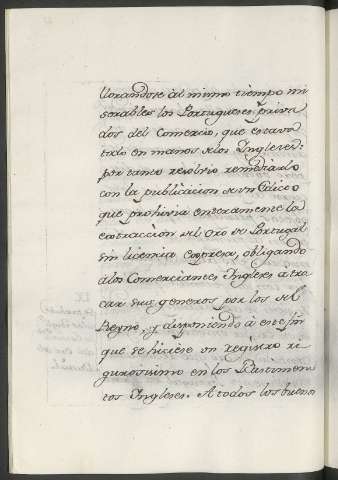 llorandose al mismo tiempo mi
serables los Portugueses, priva
dos del Comercio, que estava
todo en manos de los Ingleses:
por tanto resolvio remediarlo
con la publicacion de un Edicto
que prohivia enteramente la
extracción del Oro de Portugal
sin licencia expresa, obligando
à los Comerciantes Ingleses a tro
car sus generos por los del
Reyno, y disponiendo à este fin
que se hiciese un registro ri
gurosisimo en los Bastimen
tos Ingleses. A todos los buenos